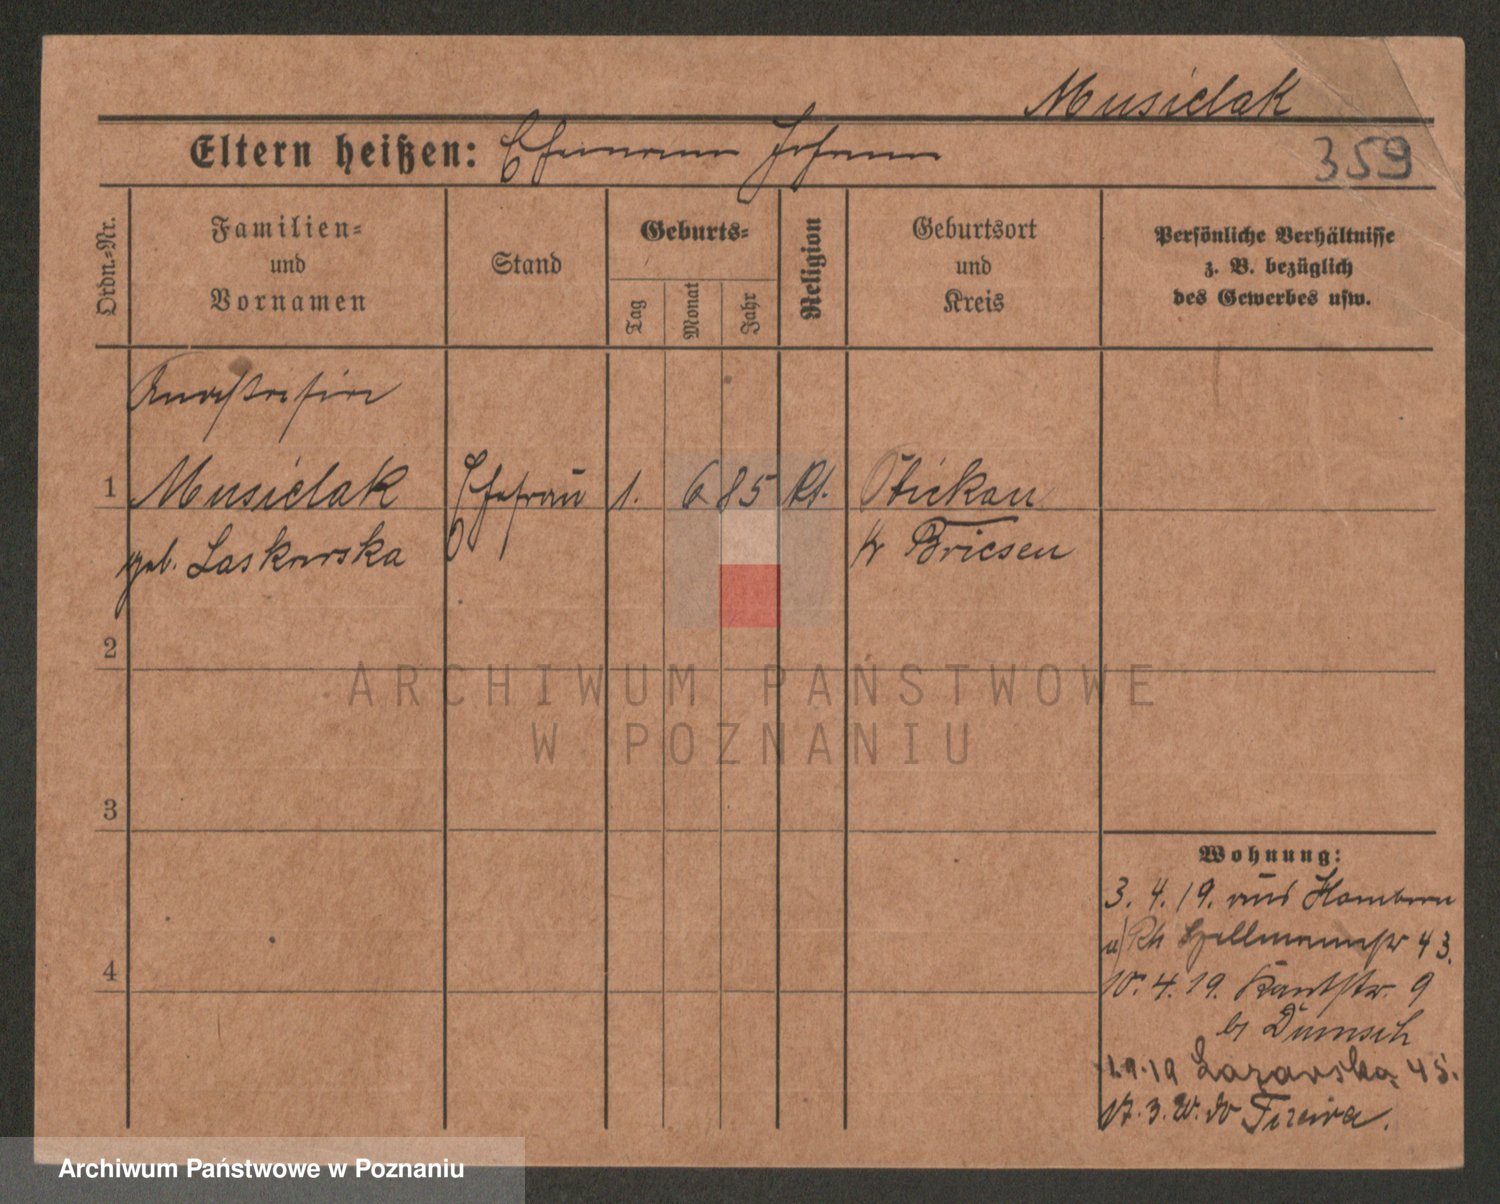 Musielak
Eltern heißen: Ehemann Johann
359
Ordn.-Nr.
Familien=
und
Vornamen
Stand
Geburts=
Tag
Monat
Jahr
Religion
Geburtsort
und
Kreis
Persönliche Verhältnisse
z. B. bezüglich
des Gewerbes usw.
1
Musielak
Ehefrau
1. 6 85
Kt.
kr Briesen
geb. Laskowska
2
ARCHIWUM PAŃSTWOWE
W POZNANIU
3
4
Wohnung:
3. 4. 19. aus Hamborn
a/Rh 43.
10. 4. 19. Kantstr. 9
b/ Dumsch
1.9.19 Lazarska 45.
17. 3. 20.
Archiwum Państwowe w Poznaniu